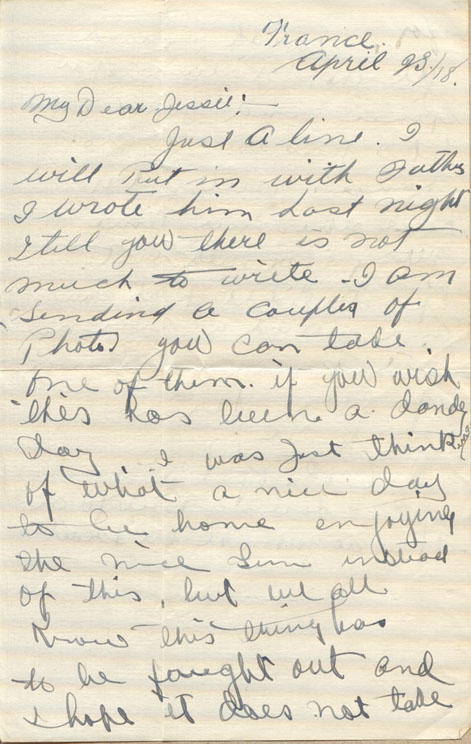 France.
April 23/18.
My Dear Jessie:-
Just a line. I
will Put in with Fathers
I wrote him Last night
I tell you there is not
much to write - I am
Sending a couple of
Photos you can take
one of them. if you wish
this has been a dandy
day. I was Just thinking
of what a nice day
to be home enjoying
the nice Sun instead
of this, but we all
Know this thing has
to be faught out and
I hope it does not take